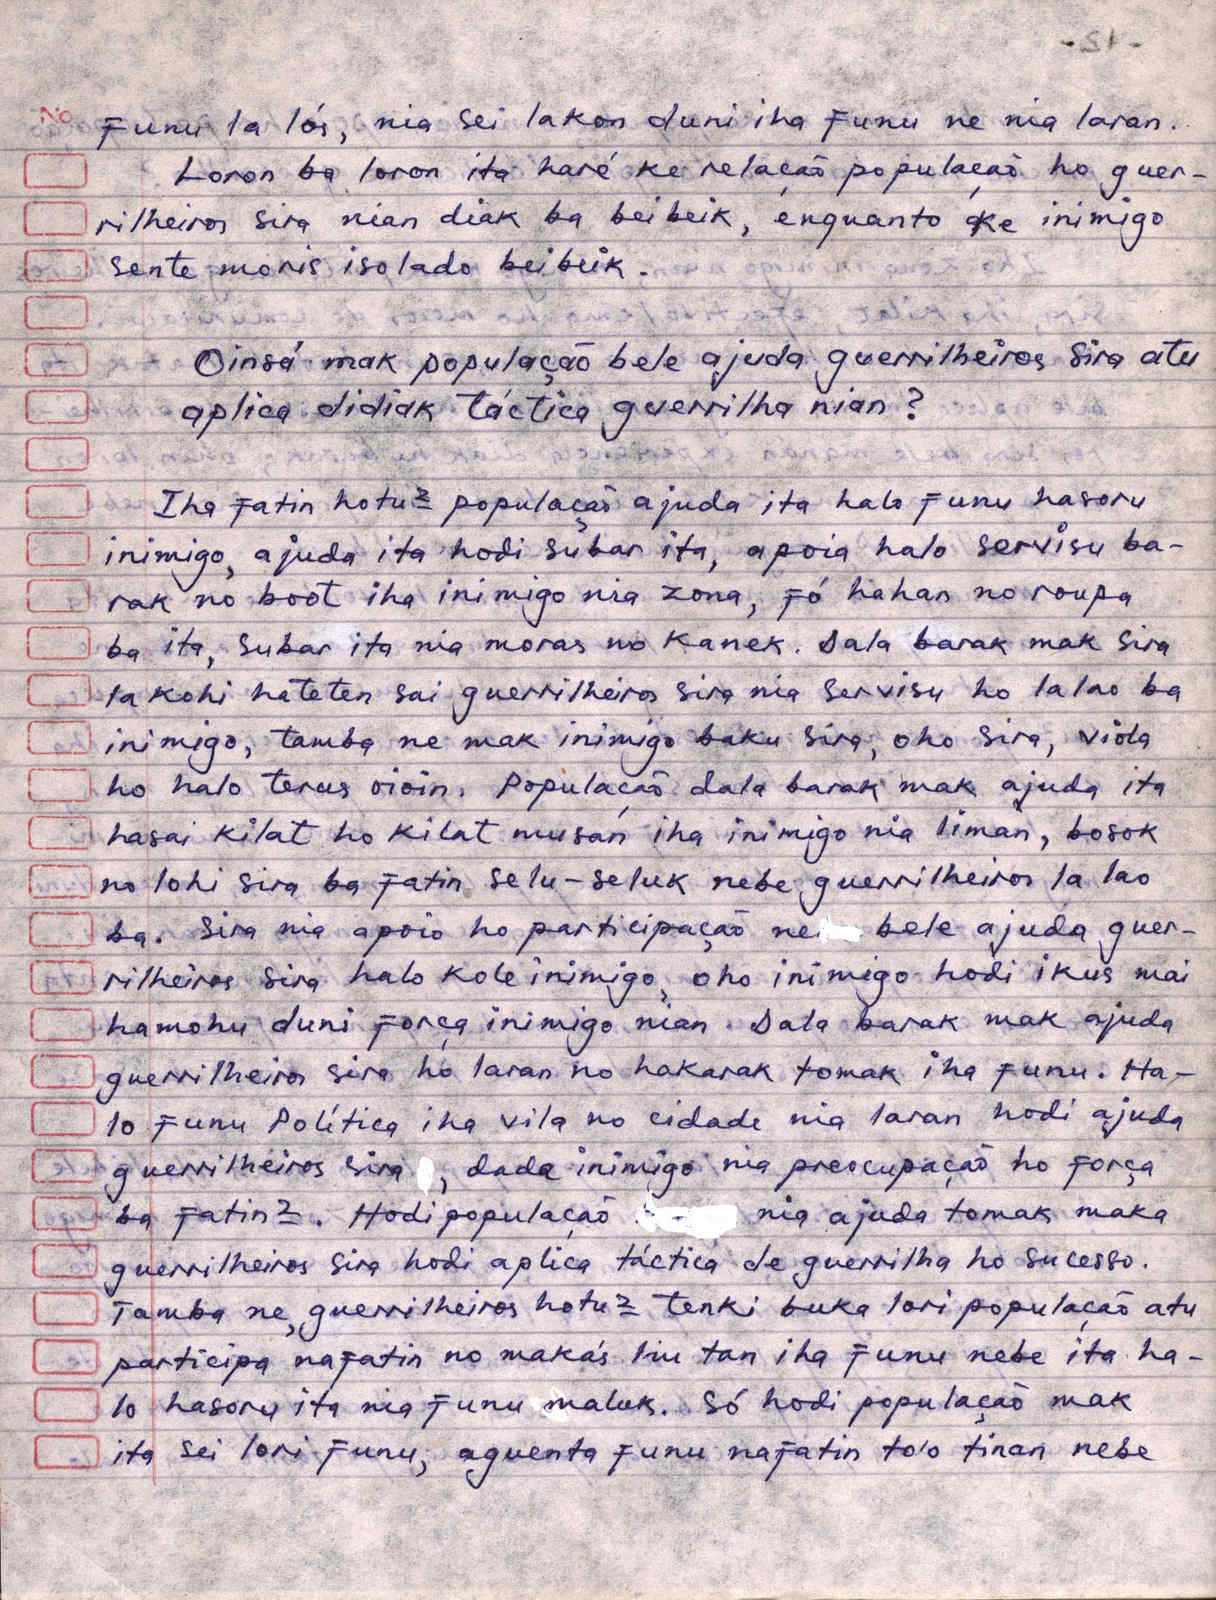 -12-
No
Funu la lós, nia sei lakon duni iha Funu ne nia laran.
Loron ba loron ita haré ke relação população ho guer-
rilheiros sira nian diak ba beibeik, enquanto ke inimigo
sente moris isolado beibeik.
Oinsá mak população bele ajuda guerrilheiros sira atu
aplica didiak táctica guerrilha nian?
Iha Fatin hotu2 população ajuda ita halo Funu hasoru
inimigo, ajuda ita hodi subar ita, apoia halo servisu ba-
rak no boot iha inimigo nia zona, Fó hahan no roupa
ba ita, subar ita nia moras no kanek. Dala barak mak sira
lakohi hateten sai guerrilheiros sira nia servisu ho lalao ba
inimigo, tamba ne mak inimigo baku sira, oho sira, viola
ho halo terus oioin. População dala barak mak ajuda ita
hasai kilat ho kilat musan iha inimigo nia liman, bosok
no lohi sira ba Fatin selu-seluk nebe guerrilheiros la lao
ba. Sira nia apoio ho participação ne bele ajuda guer-
rilheiros sira halo kole inimigo, oho inimigo hodi ikus mai
hamohu duni Força inimigo nian. Dala barak mak ajuda
guerrilheiros sira ho laran no hakarak tomak iha Funu. Ha-
lo Funu Política iha vila no cidade nia laran hodi ajuda
guerrilheiros sira, dada inimigo nia preocupação ho Força
ba Fatin2. Hodi população nia ajuda tomak maka
guerrilheiros sira hodi aplica táctica de guerrilha ho sucesso.
Tamba ne, guerrilheiros hotu2 tenki buka lori população atu
participa naFatin no makás liu tan iha Funu nebe ita ha-
lo hasoru ita nia Funu maluk. Só hodi população mak
ita sei lori Funu, aguenta Funu naFatin to'o tinan nebe